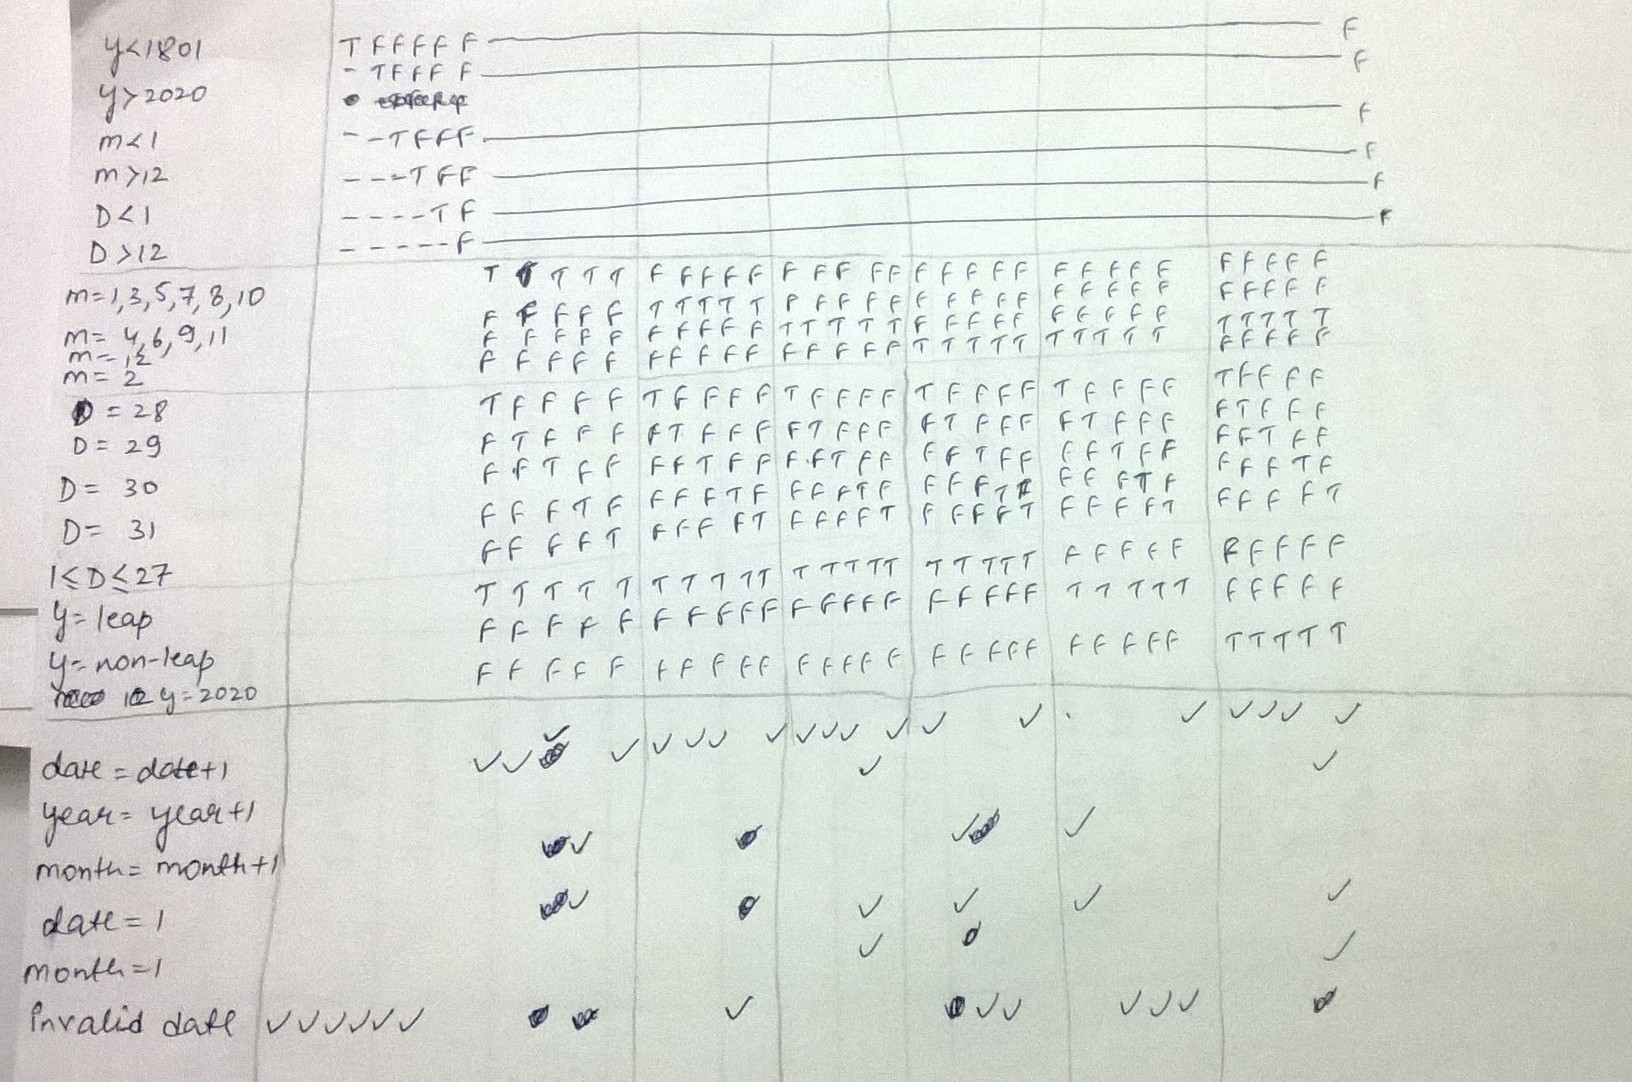 y<1801 T F F F F F F
y>2020 - T F F F F F
m<1 - - T F F F F
m>12 - - - T F F F
D<1 - - - - T F F
D>12 - - - - - F F
m=1,3,5,7,8,10 T T T T T F F F F F F F F F F F F F F F F F F F F F F F F F
m= 4,6,9,11 F F F F F T T T T T F F F F F F F F F F F F F F F F F F F F
m=12 F F F F F F F F F F T T T T T F F F F F F F F F F T T T T T
m= 2 F F F F F F F F F F F F F F F T T T T T T T T T T F F F F F
D = 28 T F F F F T F F F F T F F F F T F F F F T F F F F T F F F F
D= 29 F T F F F F T F F F F T F F F F T F F F F T F F F F T F F F
D= 30 F F T F F F F T F F F F T F F F F T F F F F T F F F F T F F
D= 31 F F F T F F F F T F F F F T F F F F T F F F T F F F F T F
1≤D≤27 F F F F T F F F F T F F F F T F F F F T F F F F T F F F F T
y= leap T T T T T T T T T T T T T T T T T T T T F F F F F F F F F F
y= non-leap F F F F F F F F F F F F F F F F F F F F T T T T T F F F F F
y=2020 F F F F F F F F F F F F F F F F F F F F F F F F F T T T T T
date = date+1 ✓ ✓ ✓ ✓ ✓ ✓ ✓ ✓ ✓ ✓ ✓ ✓ ✓ ✓ ✓ ✓ ✓ ✓ ✓
year= year+1 ✓ ✓
month= month+1 ✓ ✓ ✓
date= 1 ✓ ✓ ✓ ✓ ✓
month=1 ✓ ✓
Invalid date ✓ ✓ ✓ ✓ ✓ ✓ ✓ ✓ ✓ ✓ ✓ ✓